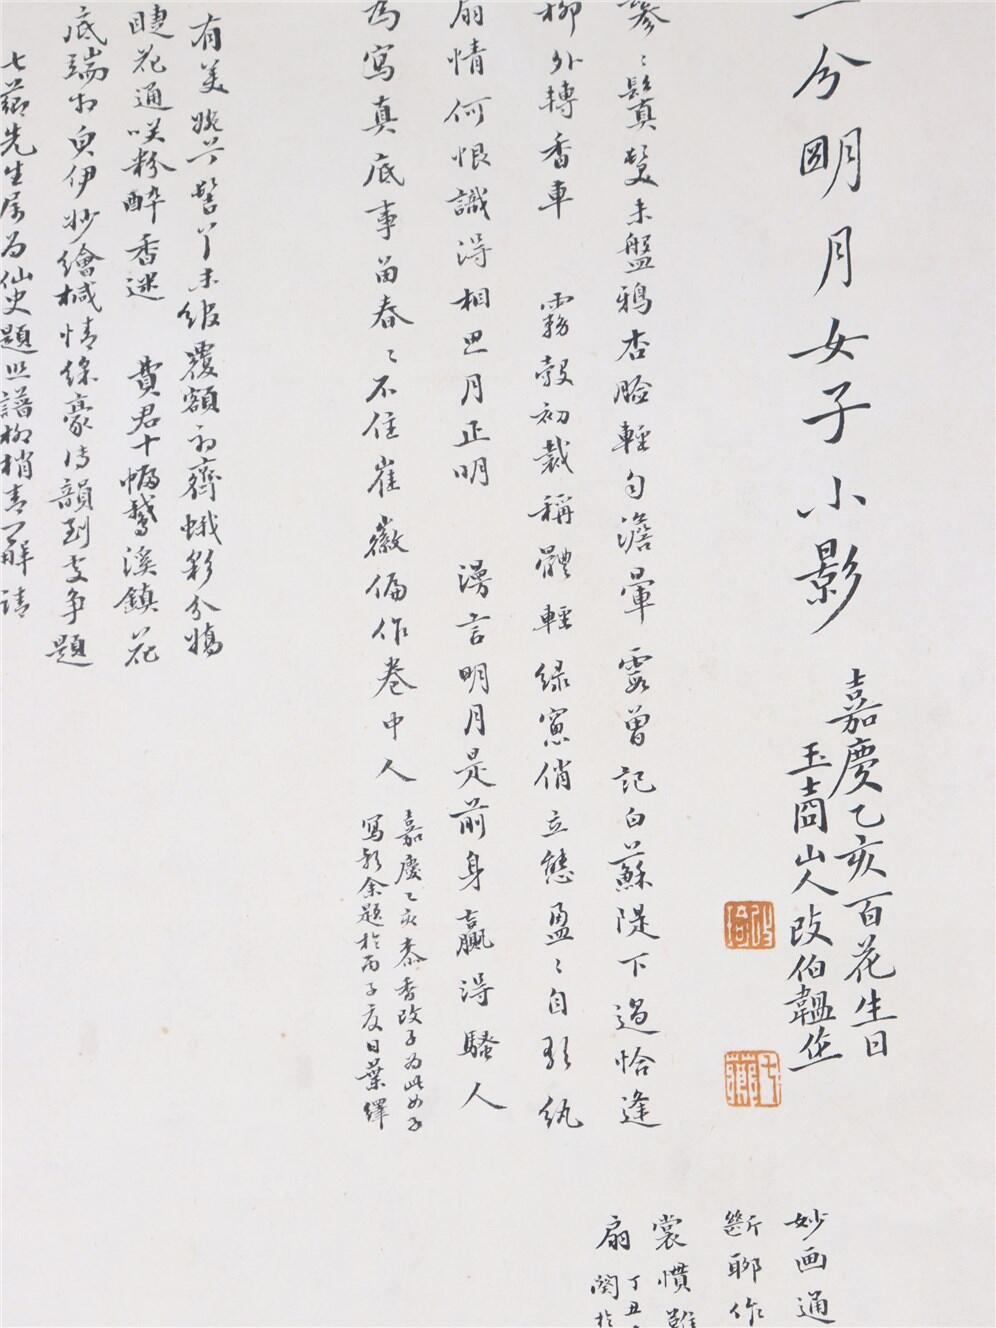 一分明月女子小影
嘉慶乙亥百花生日
玉壺山人改伯韞作
鬖〻鬒髮未盤鴉杏臉輕勻澹暈霞曾記白蘇隄下過恰逢
柳外轉香車 霧縠初裁稱體輕綠窗俏立態盈〻自歌紈
扇情何恨識得相思月正明 漫言明月是前身贏得騷人
為寫真底事留春〻不住崔徽偏作卷中人
嘉慶乙亥香改子為此女子
寫影余題於丙子夏日葉繹
有美婉兮髻丫未綰覆額初齊蛾彩分嬌
睫花通咲粉醉香迷 費君十幅鵝溪鎮花
底端相貞伊妙繪緘情綵豪傳韻到支爭題
七薌先生屬為仙史題照譜柳梢青一解請
妙画通
斷聊作
裳慣難
扇
丁丑
閏於